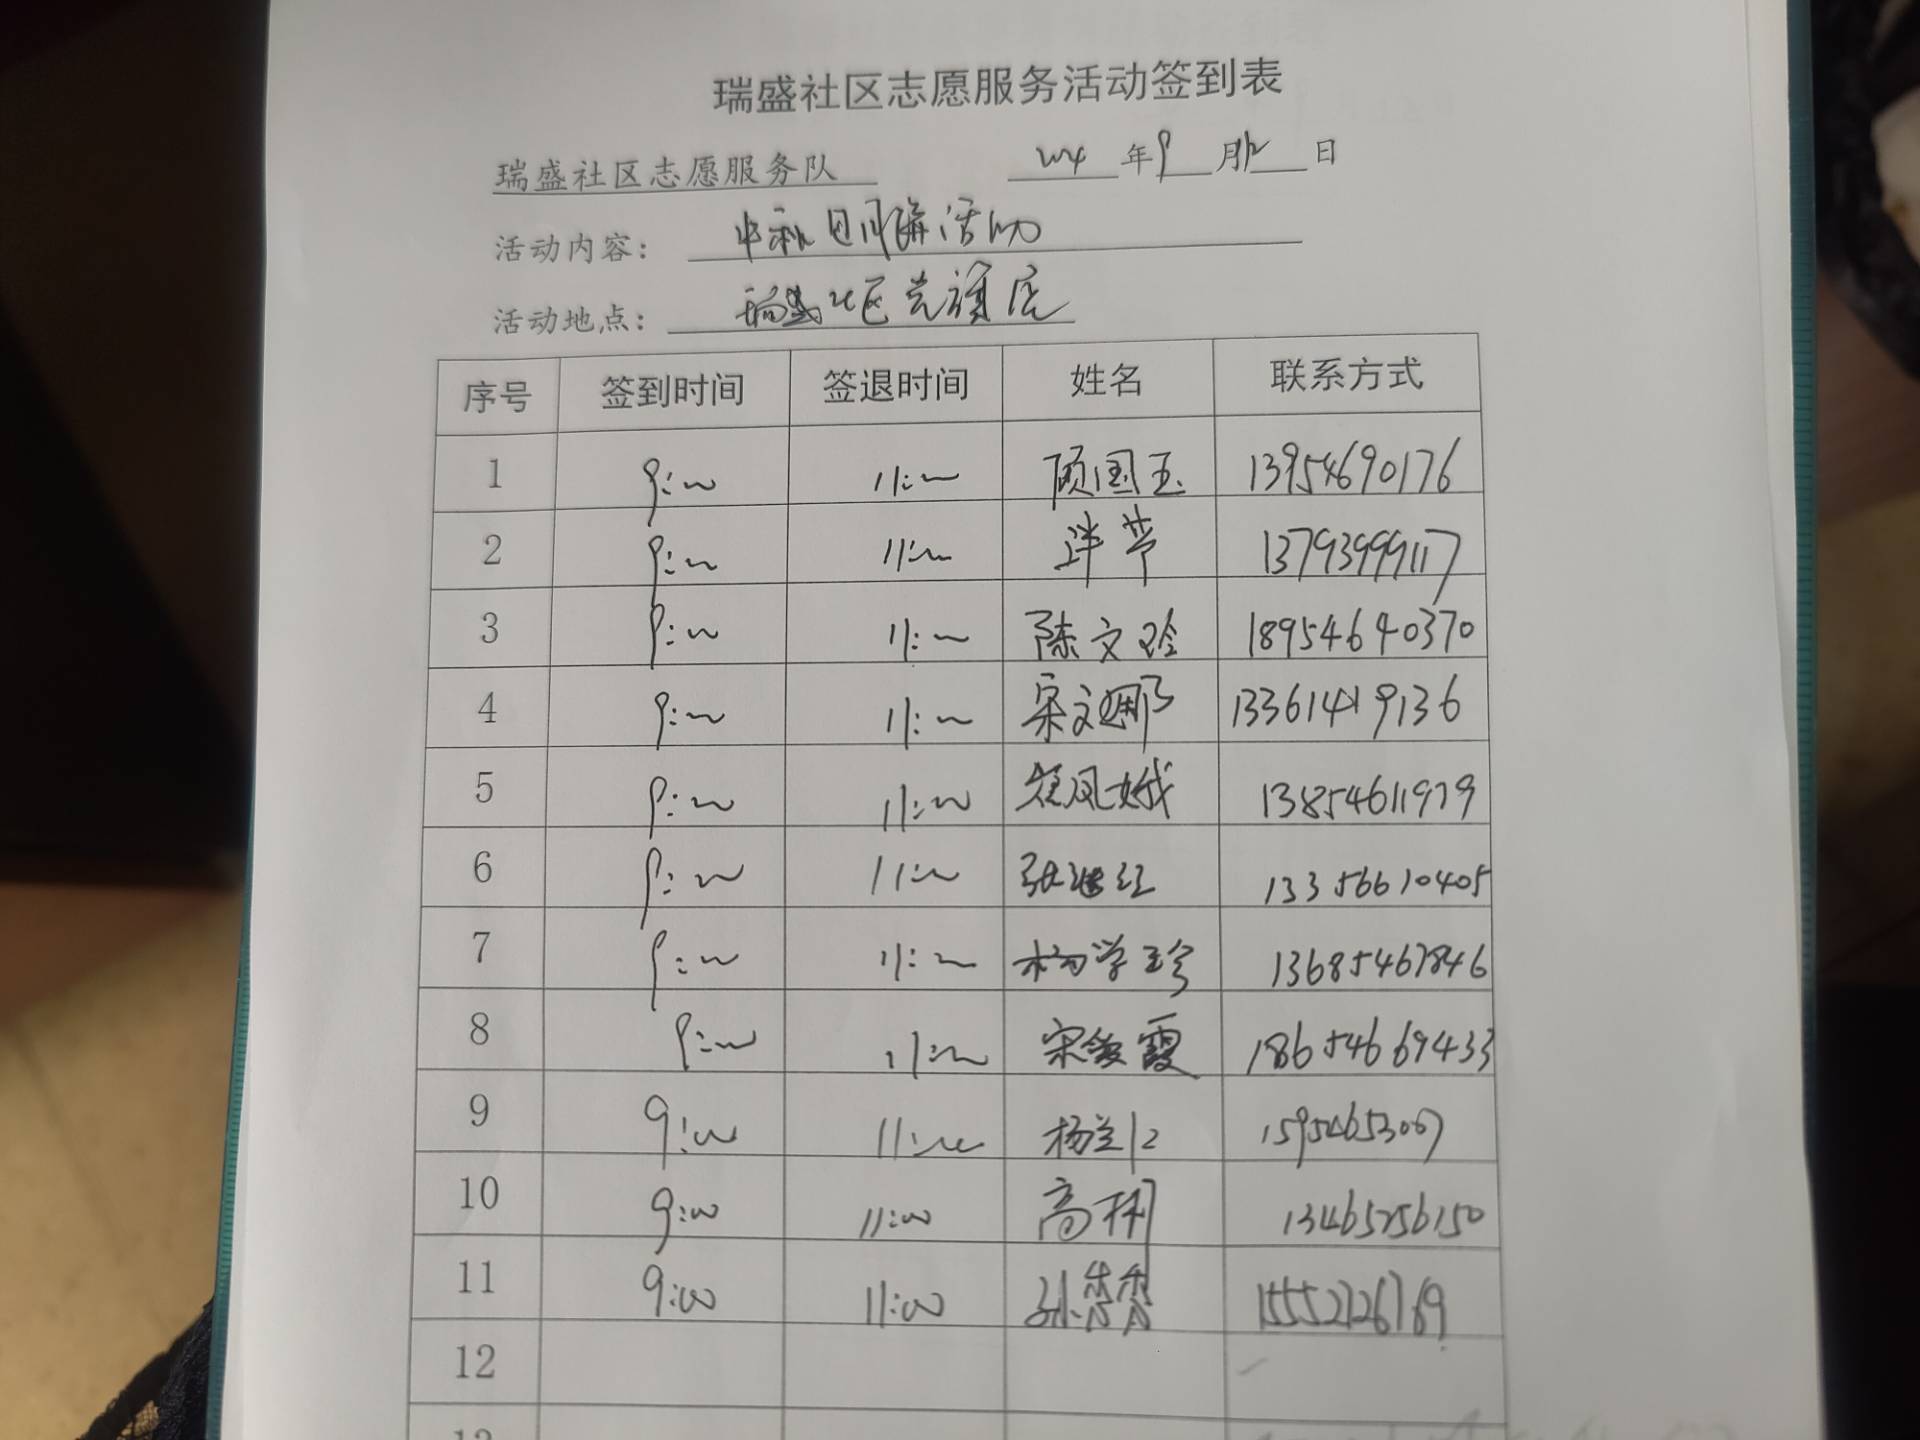 瑞盛社区志愿服务活动签到表
瑞盛社区志愿服务队 2024 年 9 月 12 日
活动内容： 中秋 活动
活动地点： 瑞盛社区
序号 签到时间 签退时间 姓名 联系方式
1 9:00 11:00 顾国玉 13954690176
2 9:00 11:00 13793999117
3 9:00 11:00 陈文玲 18954640370
4 9:00 11:00 宋文娜 13361419136
5 9:00 11:00 13854611979
6 9:00 11:00 13356610405
7 9:00 11:00 杨学珍 13685467846
8 9:00 11:00 18654669433
9 9:00 11:00 杨兰 15954653067
10 9:00 11:00 高 13465256150
11 9:00 11:00 孙 15552126769
12
13